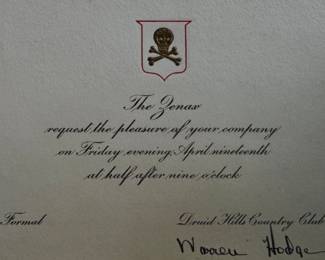 The Zenax
request the pleasure of your company
on Friday evening, April nineteenth
at half after nine o'clock
Formal Druid Hills Country Club
Warren Hodge